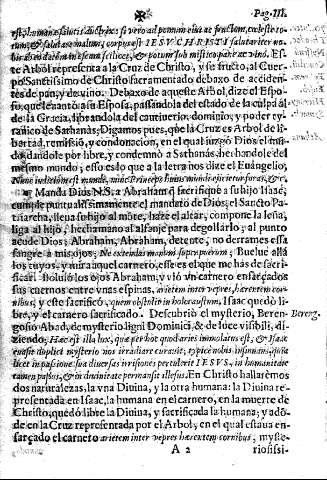 Pag. III.
est, humanæ salutis discrimen: si vero ad pomum eius ac fructum, cœleste ro-
bur, & salutare alimoniæ, corpus est IESV CHRISTI salutariter no-
Es-
te Arbol representa a la Cruz de Christo, y se fructo, al Cuer-
po Santissimo de Christo sacramentado debaxo de acciden-
tes de pan, y de vino. Debaxo de aqueste Arbol, dize el Espo-
so, que leuantò a su Esposa, passandola del estado de la culpa al
de la Gracia, librandola del cautiuerio, dominio, y poder ty-
ranico de Sathanàs; Digamos pues, que la Cruz es Arbol de li-
bertad, remissiõ, y condonacion, en el qual juzgò Dios el mũ-
do, dandole por libre, y condennò a Sathanàs, hechandole del
mesmo mundo; esso es lo que a la letra nos dize el Euãngelio,
Nunc iudicium est mundi, nunc Princeps huius mundi eijcietur foras, &c.
Manda Dios N.S. a Abraham q̃ sacrifique a su hijo Isaac,
cumple puntualissimamente el mandato de Dios, el Sancto Pa-
triarcha, lleua su hijo al mõte, haze el altar, compone la leña,
liga al hijo, hecha mano al alfanje para degollarlo; y al punto
acude Dios; Abraham, Abraham, detente, no derrames essa
sangre a mis ojos, Ne extendas manum super puerum; Buelue allà
los tuyos, y mira aquel carnero, esse es el que me has de sacri-
ficar. Boluiò los ojos Abraham, y viò vn carnero ensarçados
sus cuernos entre vnas espinas, arietem inter vepres, hærentem cor-
nibus, y este sacrificò, quem obstulit in holocaustum, Isaac quedò li-
bre, y el carnero sacrificado. Descubriò el mysterio, Beren-
gosio Abad, de mysterio ligni Dominici, & de luce visibili, di-
ziendo, Hæc est illa lux, quæ per hoc quod aries immolatus est, & Isaac
quasi duplici mysterio nos irradiare curauit, typicè nobis insinuans, quia
licet in passione sua illusus sit IESVS, in humanitate
tamen passus, & in diuinitate permansit illesus. En Christo hallarèmos
dos naturalezas, la vna Diuina, y la otra humana: la Diuina re-
presentada en Isaac, la humana en el carnero, en la muerte de
Christo, quedò libre la Diuina, y sacrificada la humana; y adõ-
de en la Cruz representada por el Arbol, en el qual estaua en-
sarçado el carnero arietem inter vepres hærentem cornibus, myste-
A 2
riosissi-
Bereng.